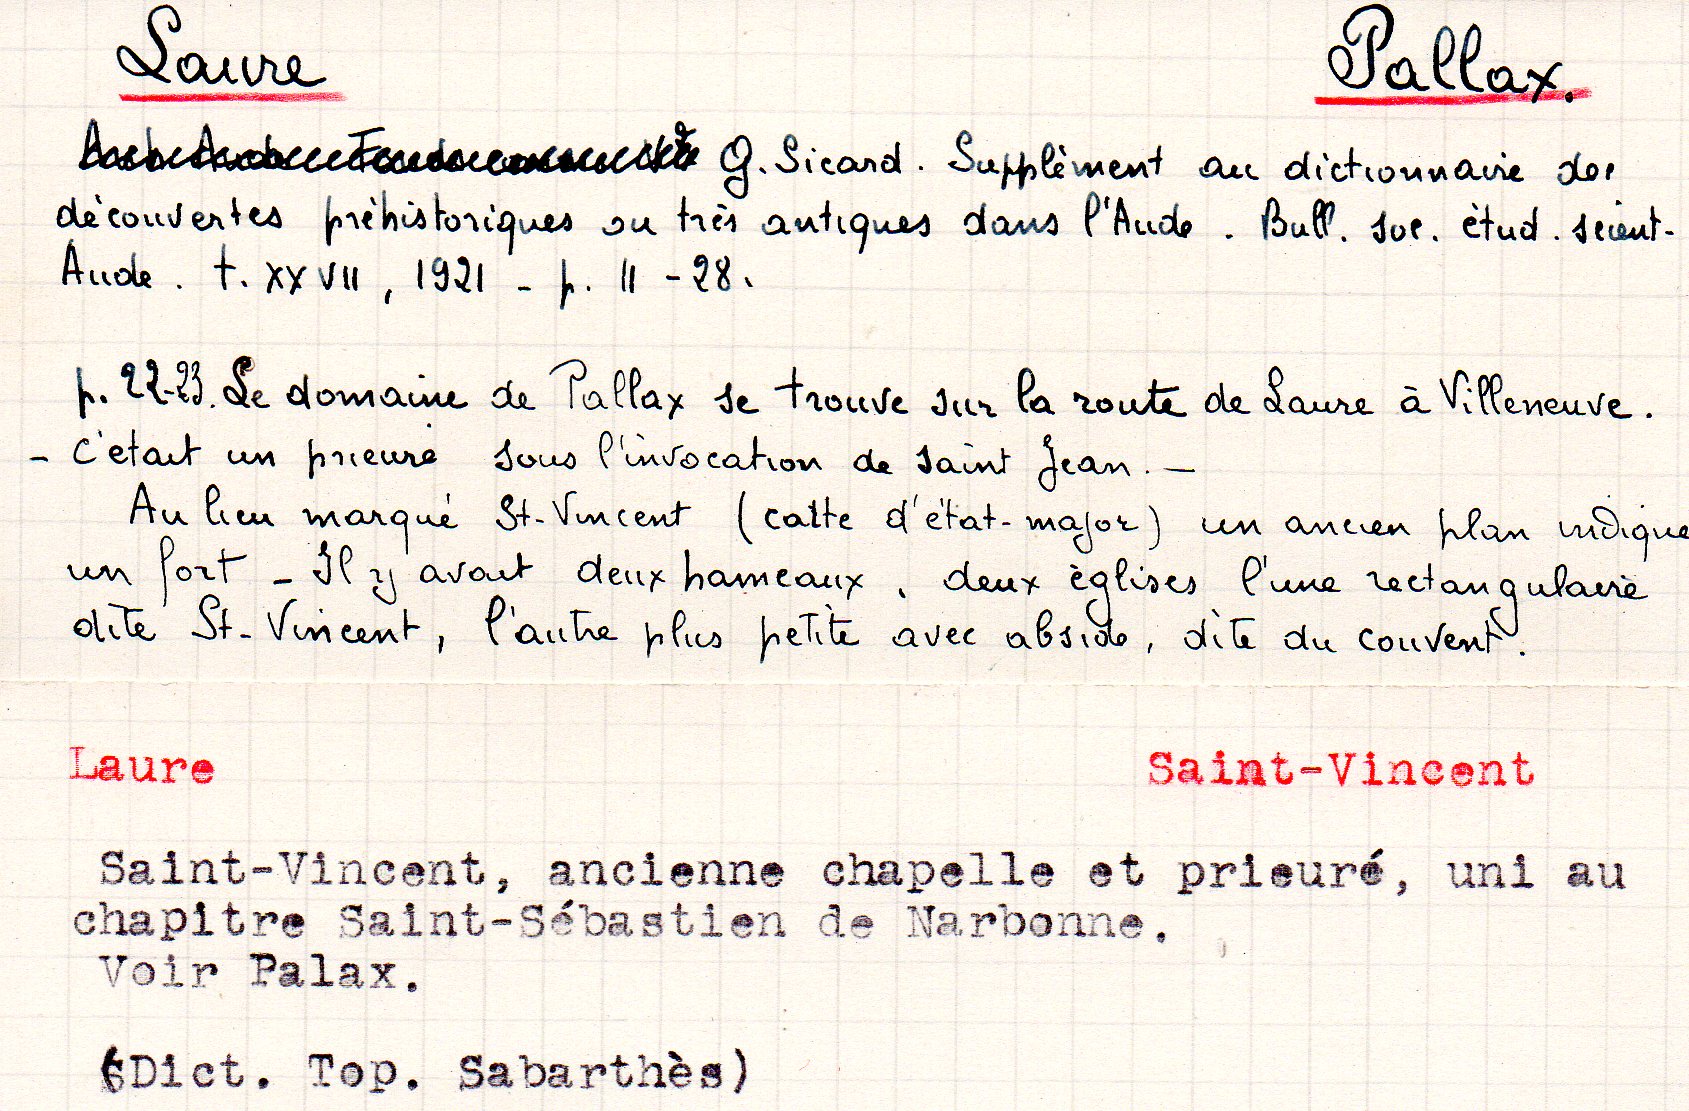 Laure Pallax.
G. Sicard. Supplément au dictionnaire des
découvertes préhistoriques ou très antiques dans l'Aude. Bull. soc. étud. scient.
Aude. t. XXVII, 1921 - p. 11 - 28.
p. 22-23. Le domaine de Pallax se trouve sur la route de Laure à Villeneuve.
- C'était un prieuré sous l'invocation de saint Jean. -
Au lieu marqué St-Vincent (carte d'état-major) un ancien plan indique
un fort - Il y avait deux hameaux, deux églises l'une rectangulaire
dite St-Vincent, l'autre plus petite avec abside, dite du couvent.
Laure Saint-Vincent
Saint-Vincent, ancienne chapelle et prieuré, uni au
chapitre Saint-Sébastien de Narbonne.
Voir Palax.
(Dict. Top. Sabarthès)